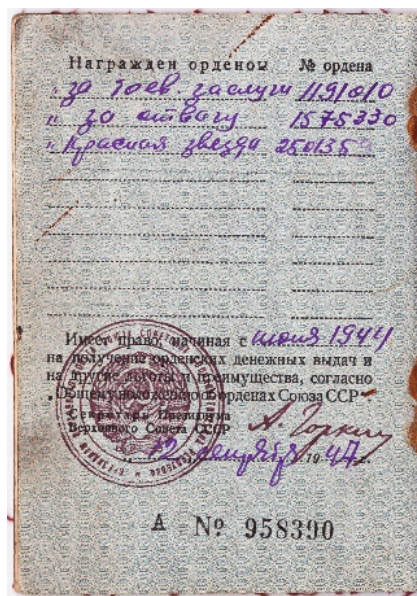 Награжден орденом № ордена
„за боев. заслуги 1191010
„ за отвагу 1575330
„Красная звезда 250135
Имеет право, начиная с июня 1944
на получение орденских денежных выдач и
на другие льготы и преимущества, согласно
„Общему положению об орденах Союза ССР“
Секретарь Президиума
Верховного Совета СССР
А. Горкин
„12„ сентября 1947 г.
А № 958390